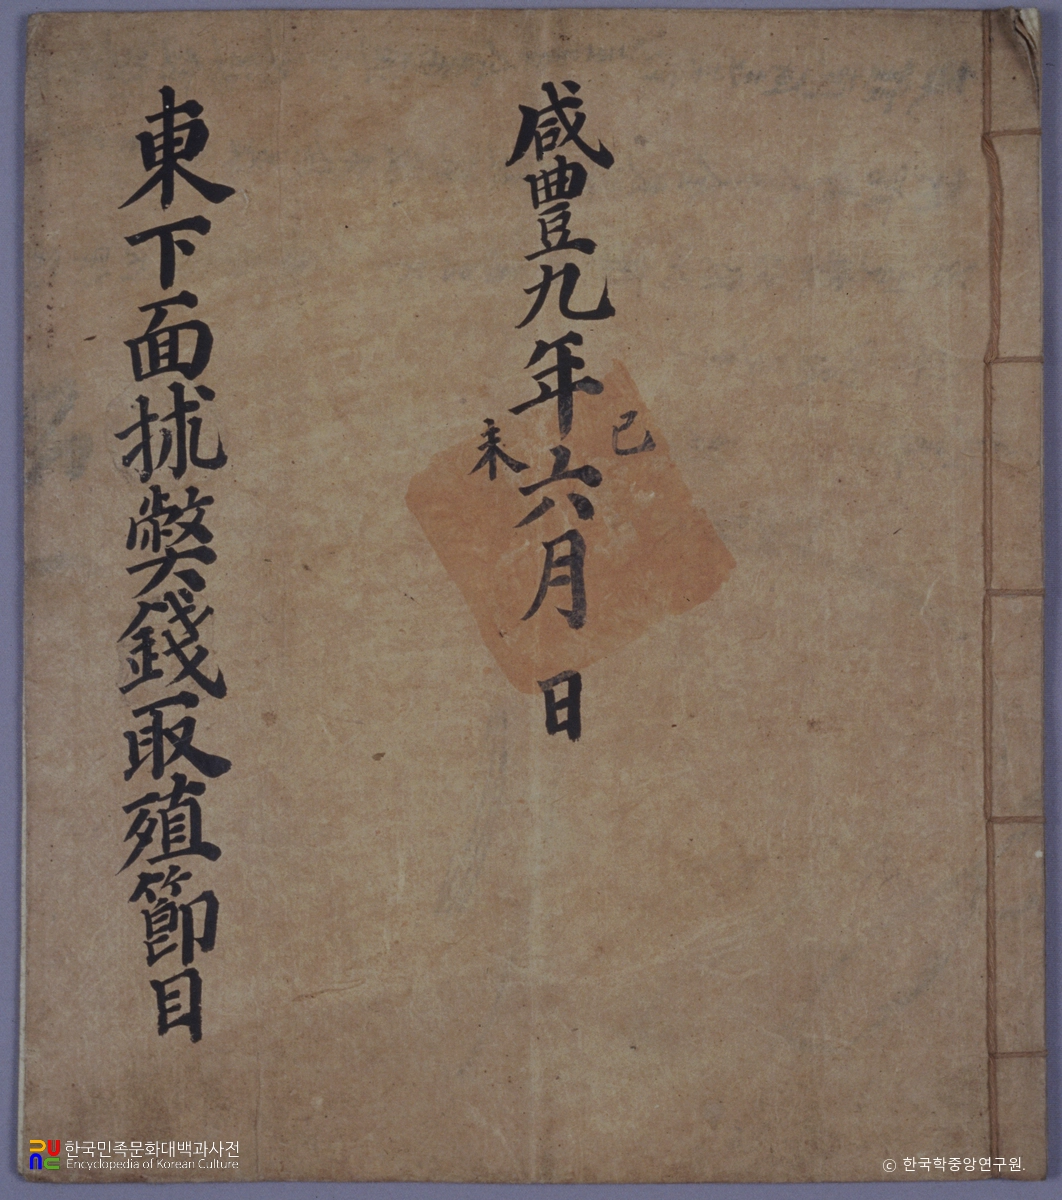 咸豐九年己未六月 日
東下面捄獘錢取殖節目
한국민족문화대백과사전
Encyclopedia of Korean Culture
© 한국학중앙연구원.